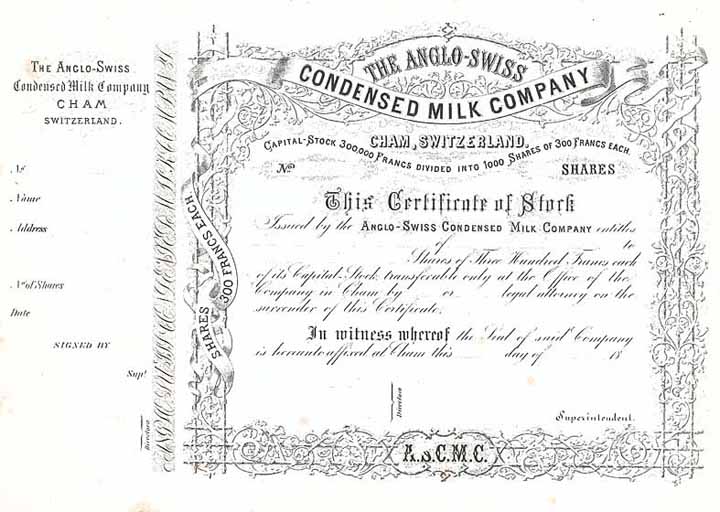 THE ANGLO-SWISS
Condensed Milk Company
CHAM
SWITZERLAND.
No
Name
Address
No of Shares
Date
SIGNED BY
Supt
Directors
THE ANGLO-SWISS
CONDENSED MILK COMPANY
CHAM, SWITZERLAND.
CAPITAL-STOCK 300,000 FRANCS DIVIDED INTO 1000 SHARES OF 300 FRANCS EACH.
No SHARES
SHARES 300 FRANCS EACH
This Certificate of Stock
Issued by the ANGLO-SWISS CONDENSED MILK COMPANY entitles
of to
Shares of Three Hundred Francs each
of its Capital-Stock, transferable only at the Office of the
Company in Cham by or legal attorney on the
surrender of this Certificate.
In witness whereof the Seal of said Company
is hereunto affixed at Cham this day of 18
Directors
Superintendent.
A.S.C.M.C.